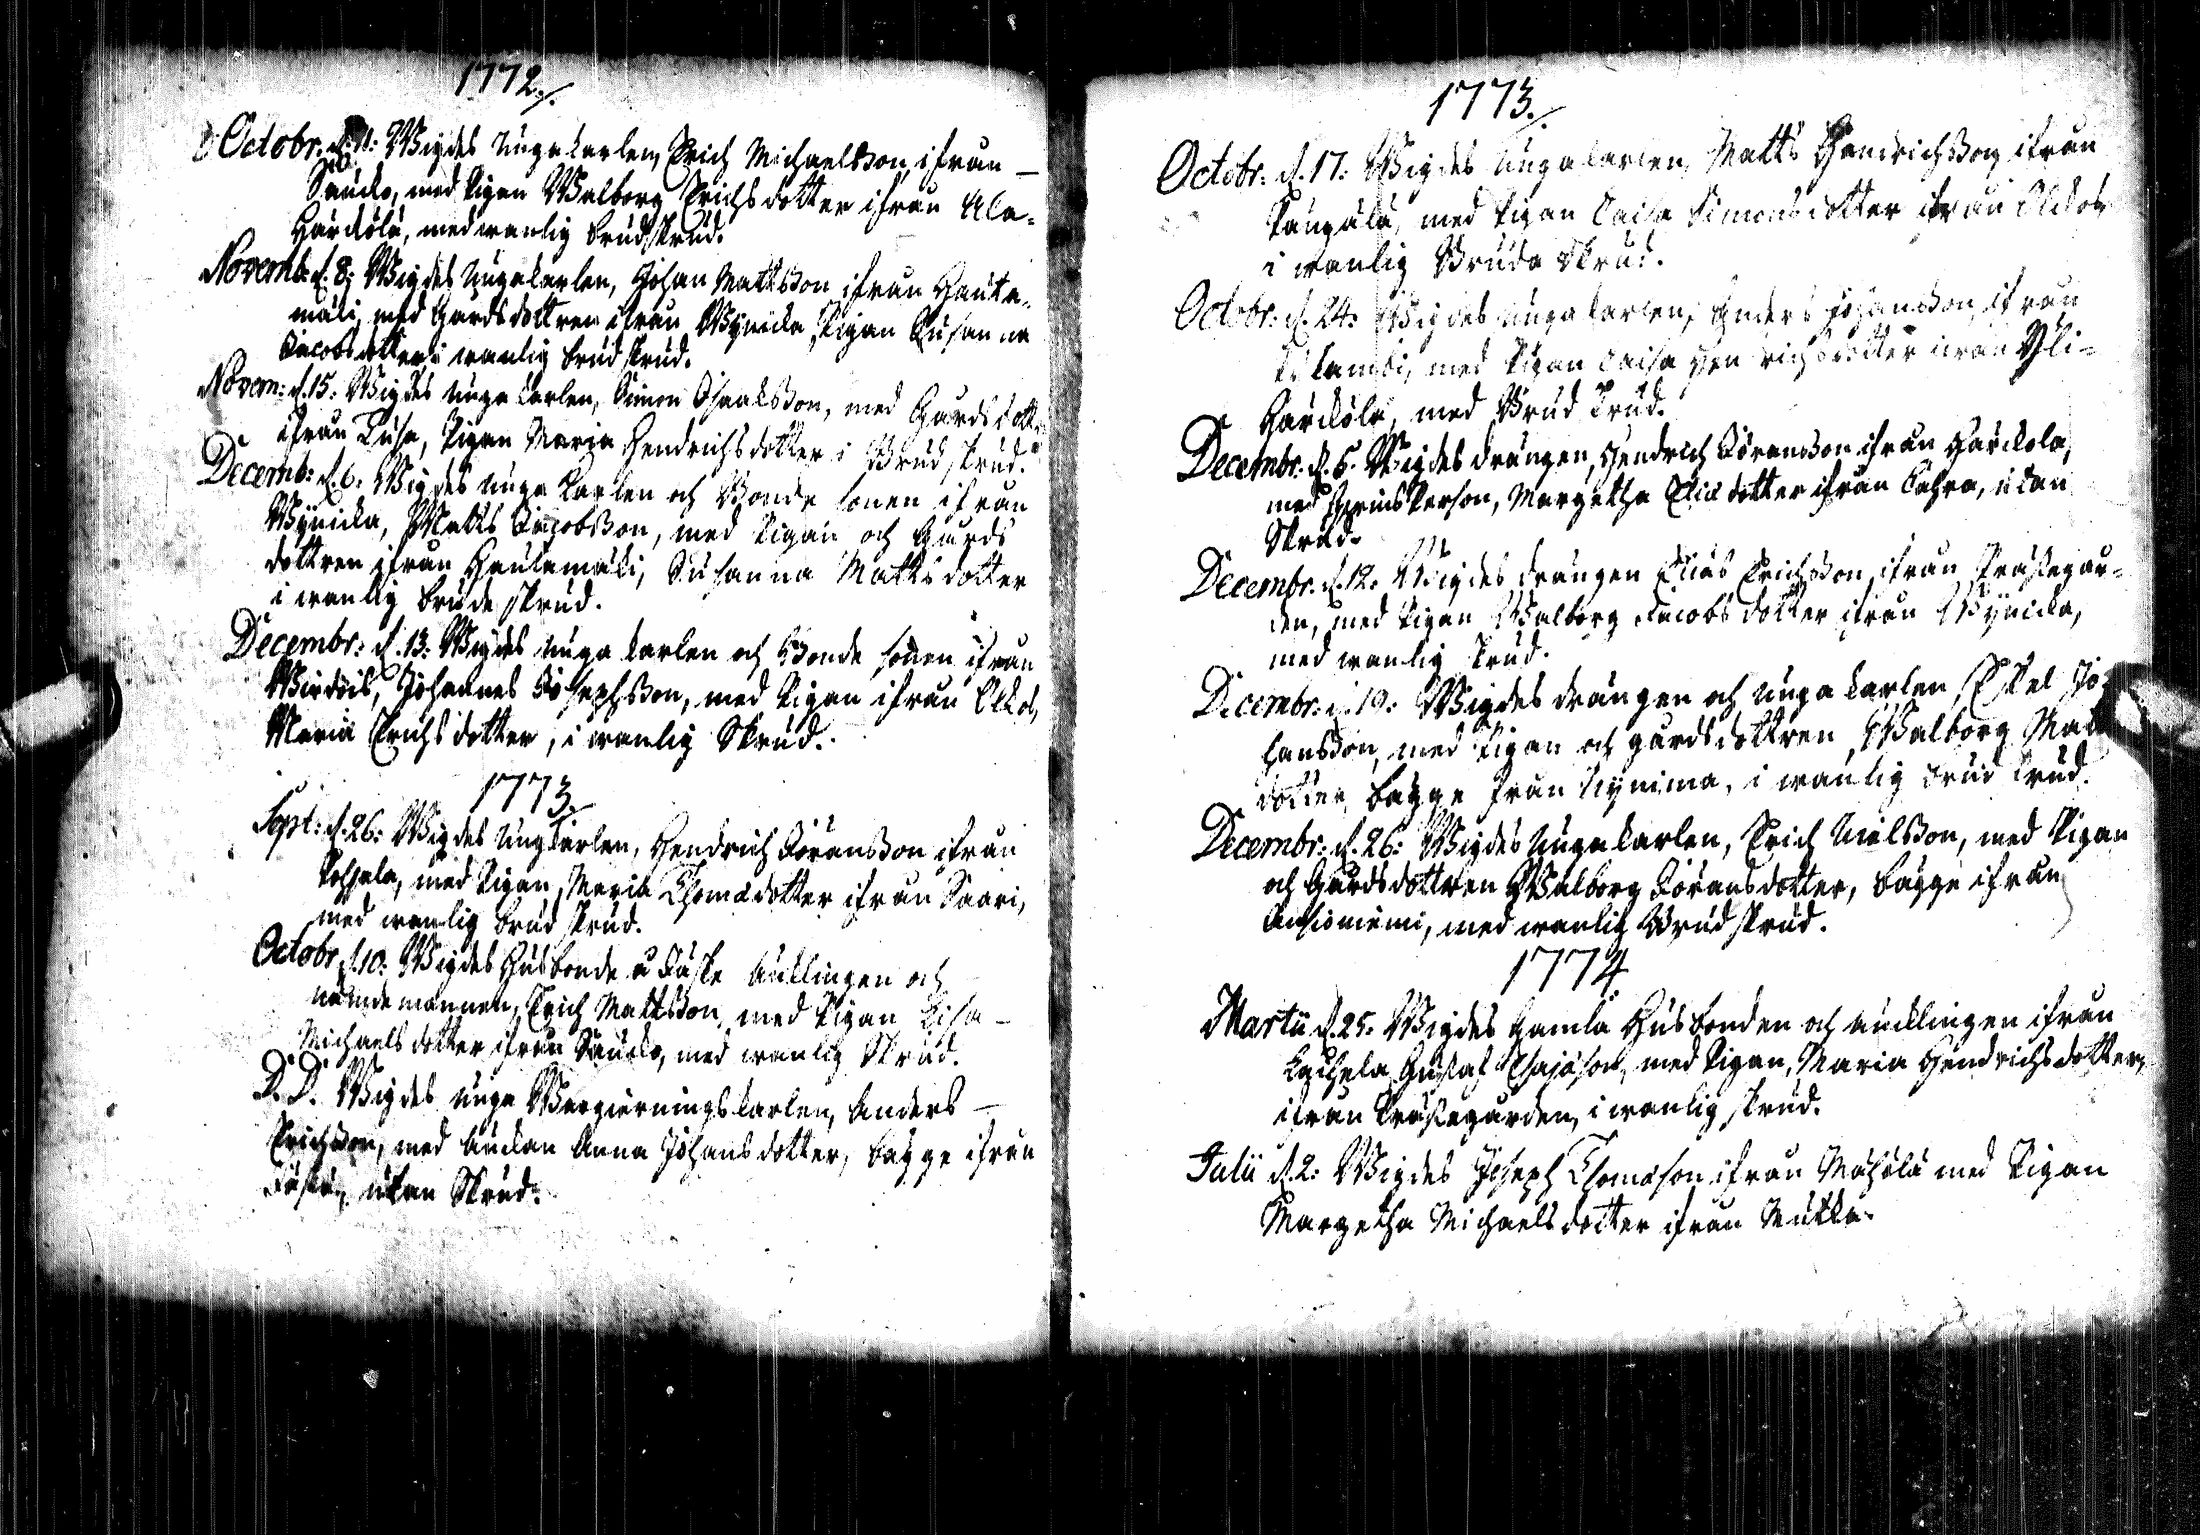 1772./.
Octobr: d. : Wigdes Ungakarlen, Erich Michaelsson, ifrån –
Sauko, med Pigan Walborg Erichsdotter ifrån Ala-
Härkölä, med wanlig brudskrud.
Novemb: d. 8: Wigdes Ungakarlen, Johan Mattsson ifrån Hauta-
mäki, med Gårdsdottren ifrån Wynicka, Pigan Susanna
Jacobsdotter i wanlig brudskrud.
Novem: d. 15: Wigdes unga karlen, Simon Isaaksson, med Gårdsdott
ifrån Pigan Maria Hendrichsdotter i Brudskrud.
Decemb: d. 6. Wigdes unga karlen och Bonde sonen ifrån
Wynicka, Matts Jacobsson, med Pigan och Gårds
dottren ifrån Hautamäki, Susanna Mattsdotter
i wanlig brudeskrud.
Decembr: d. 13: Wigdes unga karlen och Bonde sonen ifrån
Johannes Josephsson, med Pigan ifrån
Maria Erichsdotter, i wanlig Skrud.
1773./.
Sept: d. 26: Wigdes Ungkarlen, Hendrich Jöransson ifrån
Pohjala, med Pigan, Maria Thomædotter ifrån Saari,
med wanlig brudskrud.
Octobr d. 10: Wigdes Husbonde å Enklingen och
nämdemannen, Erich Mattsson, med Pigan Lisa –
Michaelsdotter ifrån Sauko, med wanlig Skrud.
D. D. Wigdes unga Wargieringskarlen, Anders –
Erichsson, med Enckan Anna Johansdotter, bägge ifrån
utan Skrud.
1773./.
Octobr: d. 17: Wigdes Ungakarlen, Matts Hendrichsson ifrån
med Pigan Caisa Simonsdotter ifrån
i wanlig Bruda Skrud.
Octobr: d. 24: Wigdes Ungakarlen, Anders Johansson, ifrån
med Pigan Caisa Hendrichsdotter ifrån Yli-
Härkölä, med Brud Skrud.
Decembr: d. 5. Wigdes drängen, Hendrich Jöransson ifrån Härkola,
med Person, Margetha dotter ifrån utan
Skrud.
Decembr. d. 12: Wigdes drängen Elias Erichsson, ifrån Prästegår-
den, med Pigan Walborg Jacobsdotter ifrån Wynicka,
med wanlig Skrud.
Decembr: d. 19: Wigdes drängen och unga karlen, Eskel Jo-
hansson, med Pigan och gårdsdottren, Walborg
dotter, bägge från i wanlig brud skrud.
Decembr: d. 26: Wigdes Ungakarlen, Erich Nielsson, med Pigan
och Gårdsdottren Walborg Jöransdotter, bägge ifrån
med wanlig Brudskrud.
1774
Martii d. 25. Wigdes Gamla Husbonden och Encklingen ifrån
Gustaf med Pigan, Maria Hendrichsdotter,
ifrån Prästegården, i wanlig skrud.
Julii d. 2: Wigdes Joseph Thomæson ifrån med Pigan
Margetha Michaelsdotter ifrån